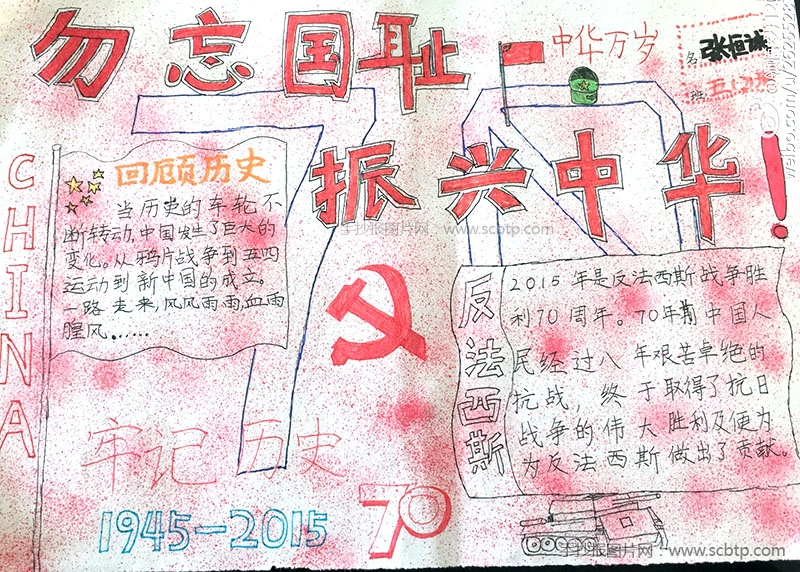 勿忘国耻
中华万岁
名 张恒诚
班
振兴中华！
CHINA
回顾历史
当历史的车轮不
断转动,中国发生了巨大的
变化。从鸦片战争到五四
运动到新中国的成立。
一路走来,风风雨雨,血雨
腥风……
手抄张图片网：www.scbtp.com
反法西斯
2015年是反法西斯战争胜
利70周年。70年期中国人
民经过八年艰苦卓绝的
抗战，终于取得了抗日
战争的伟大胜利及便为
为反法西斯做出了贡献。
牢记历史
1945-2015
70
手抄张图片网：www.scbtp.com